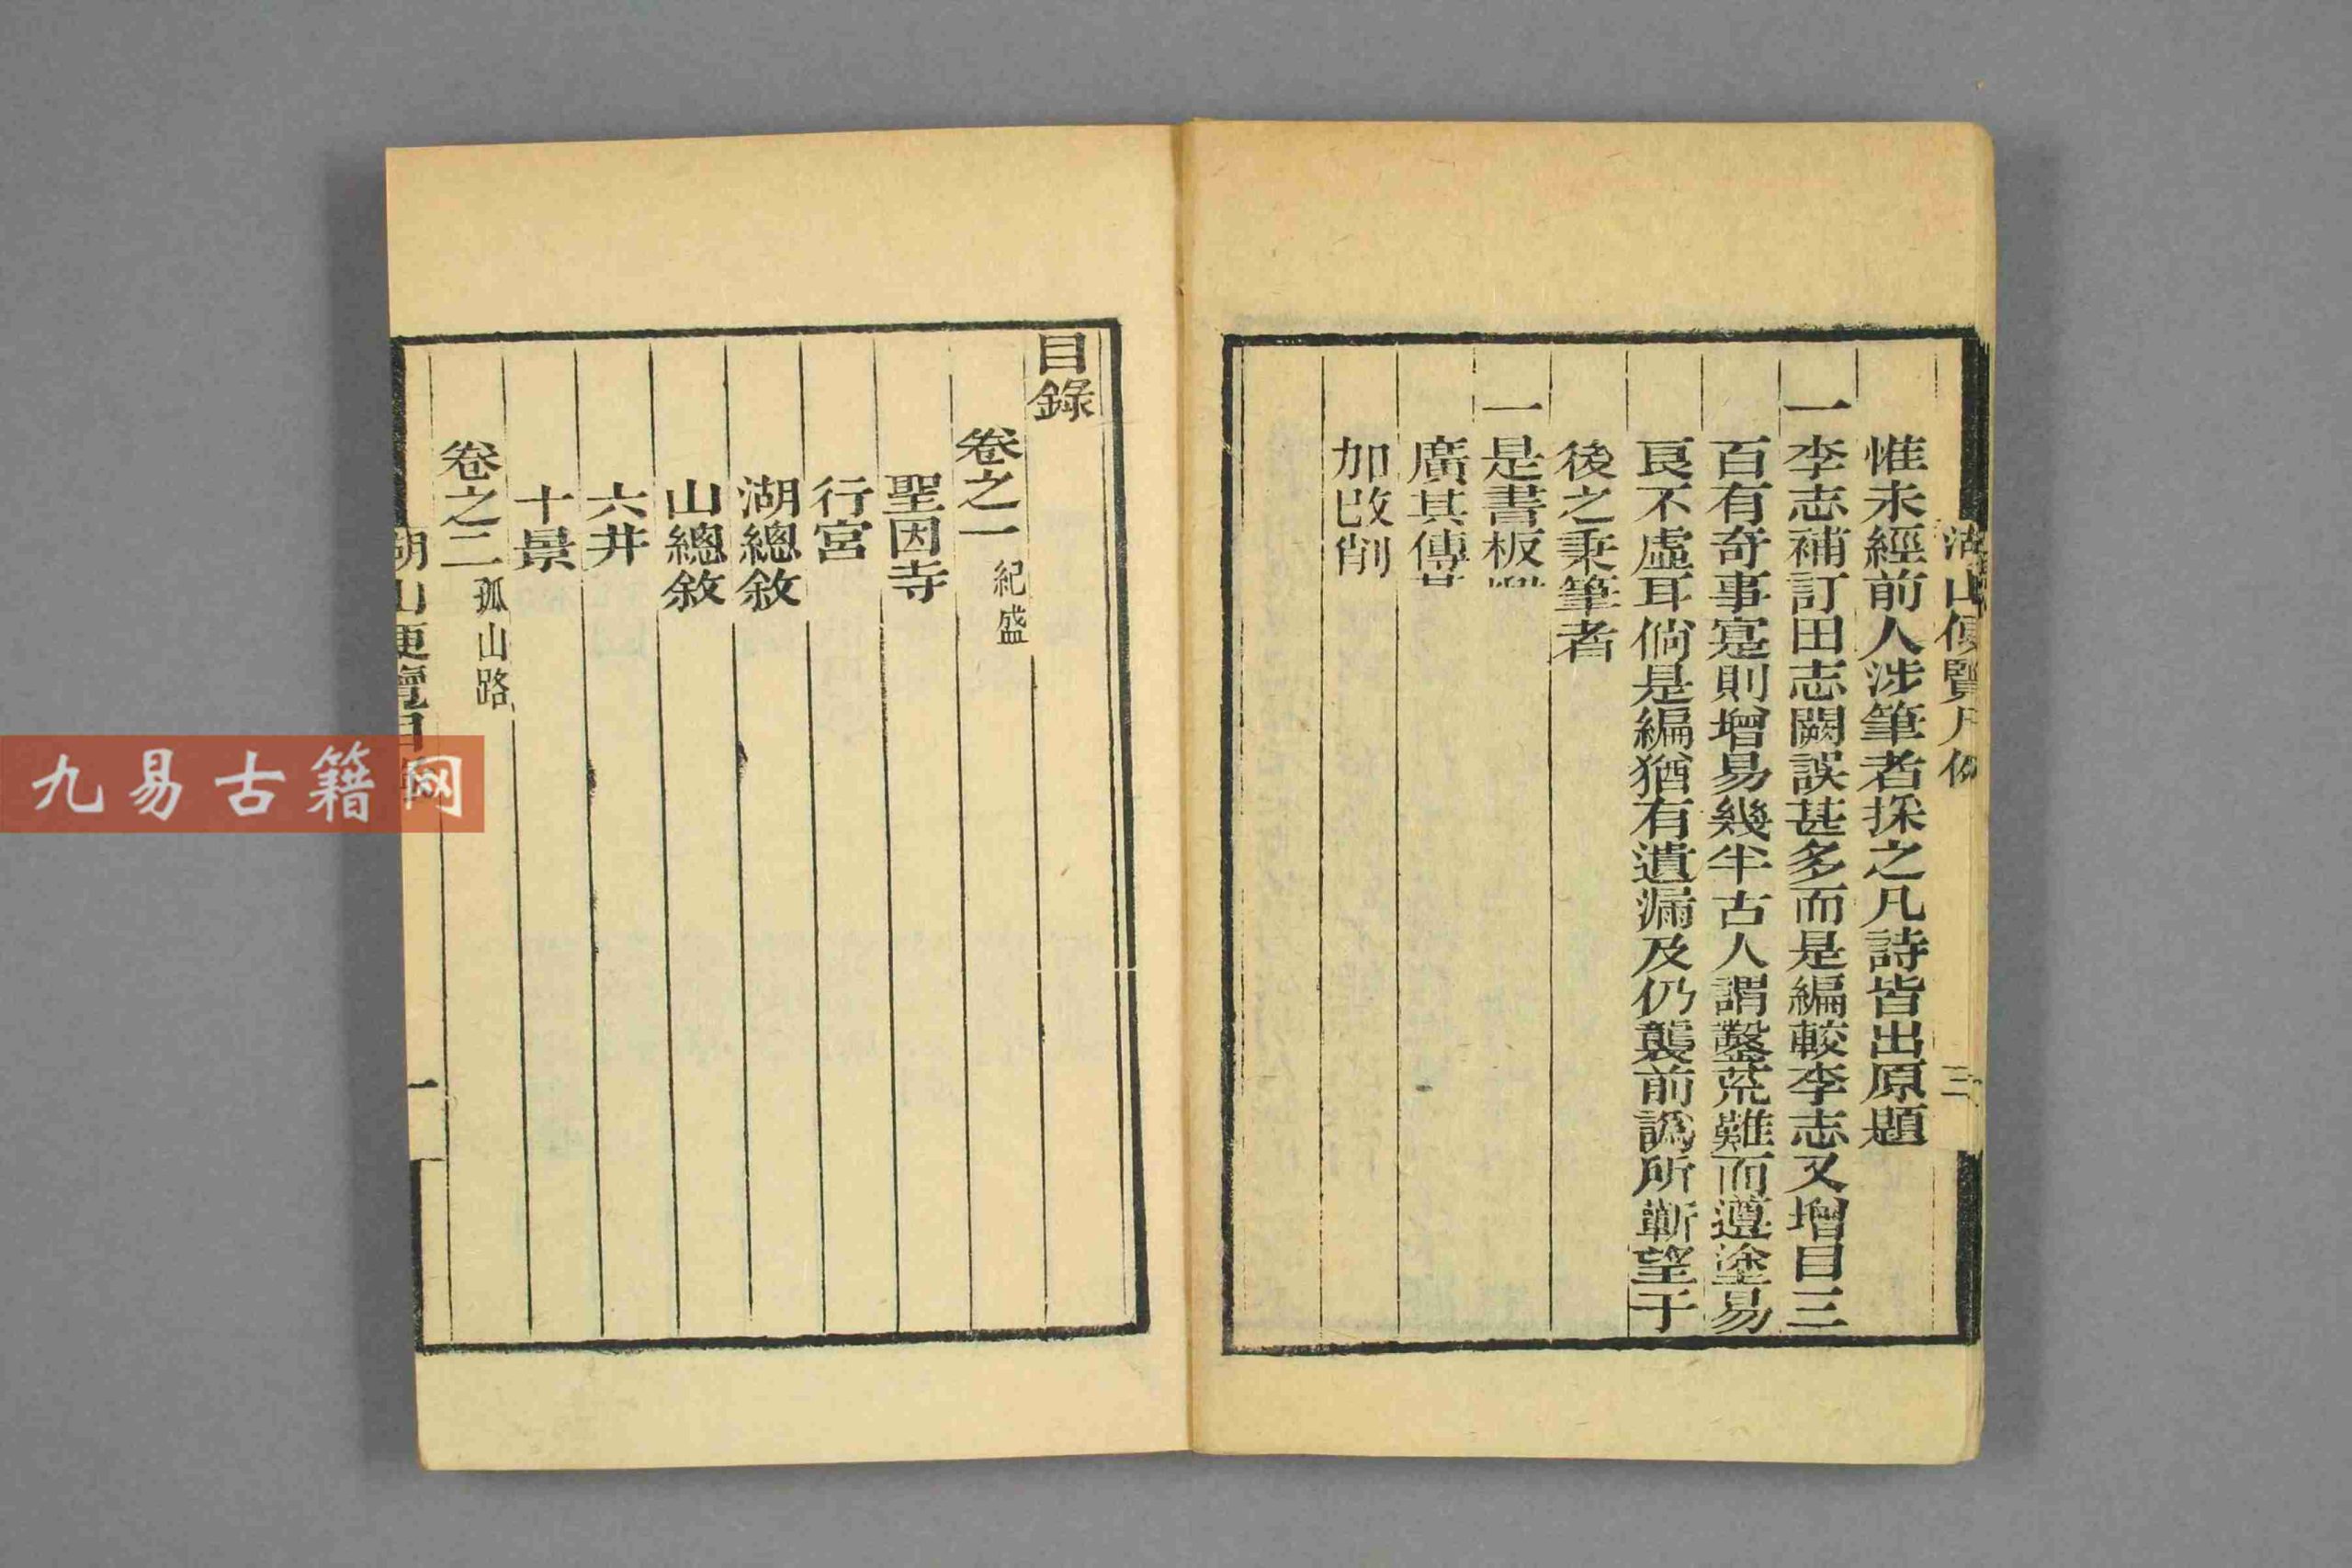 湖山便覽凡例
三
惟未經前人涉筆者採之凡詩皆出原題
一李志補訂田志闕誤甚多而是編較李志又增目三
百有奇事寔則增易幾半古人謂鑿荒難而遵塗易
良不虛耳倘是編猶有遺漏及仍襲前譌所蘄望于
後之秉筆者
一是書板
廣其傳
加改削
目錄
卷之一 紀盛
聖因寺
行宮
湖總敘
山總敘
六井
十景
卷之二 孤山路
湖山便覽目
一
九易古籍网